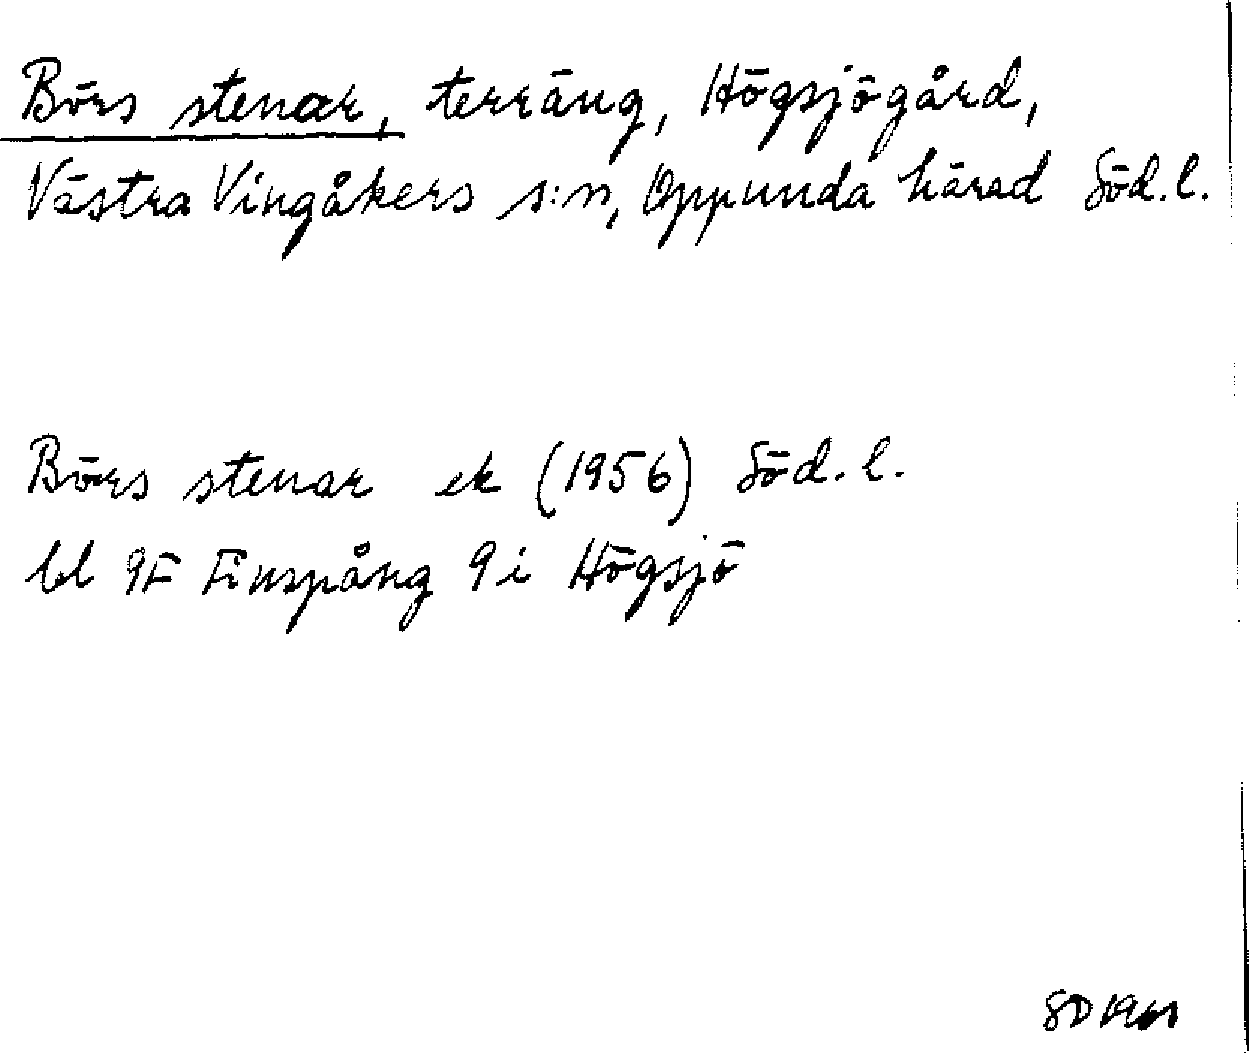 Börs stenar, terräng, Högsjögård,
Västra Vingåkers s:n, Oppunda härad Söd.l.
Börs stenar ek (1956) Söd.l.
bl 9F Finspång 9i Högsjö
SD